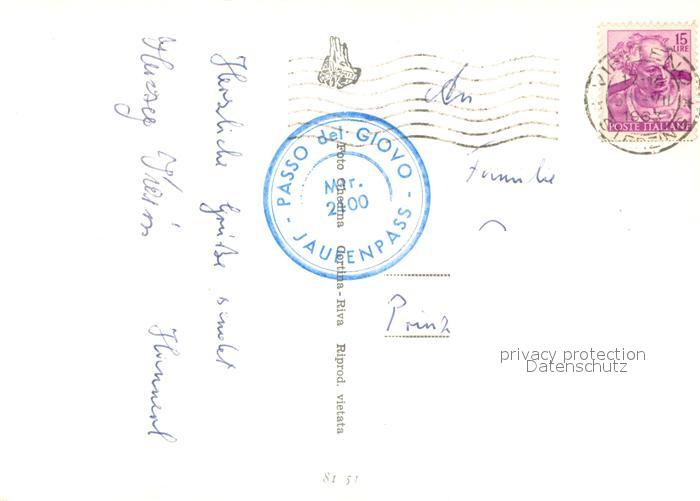 Herzliche Grüße sendet
An
Familie
Prinz
PASSO del GIOVO
Mtr.
2100
JAUFENPASS
15
LIRE
POSTE ITALIANE
Foto Ghedina Cortina-Riva Riprod. vietata
81 51
privacy protection
Datenschutz